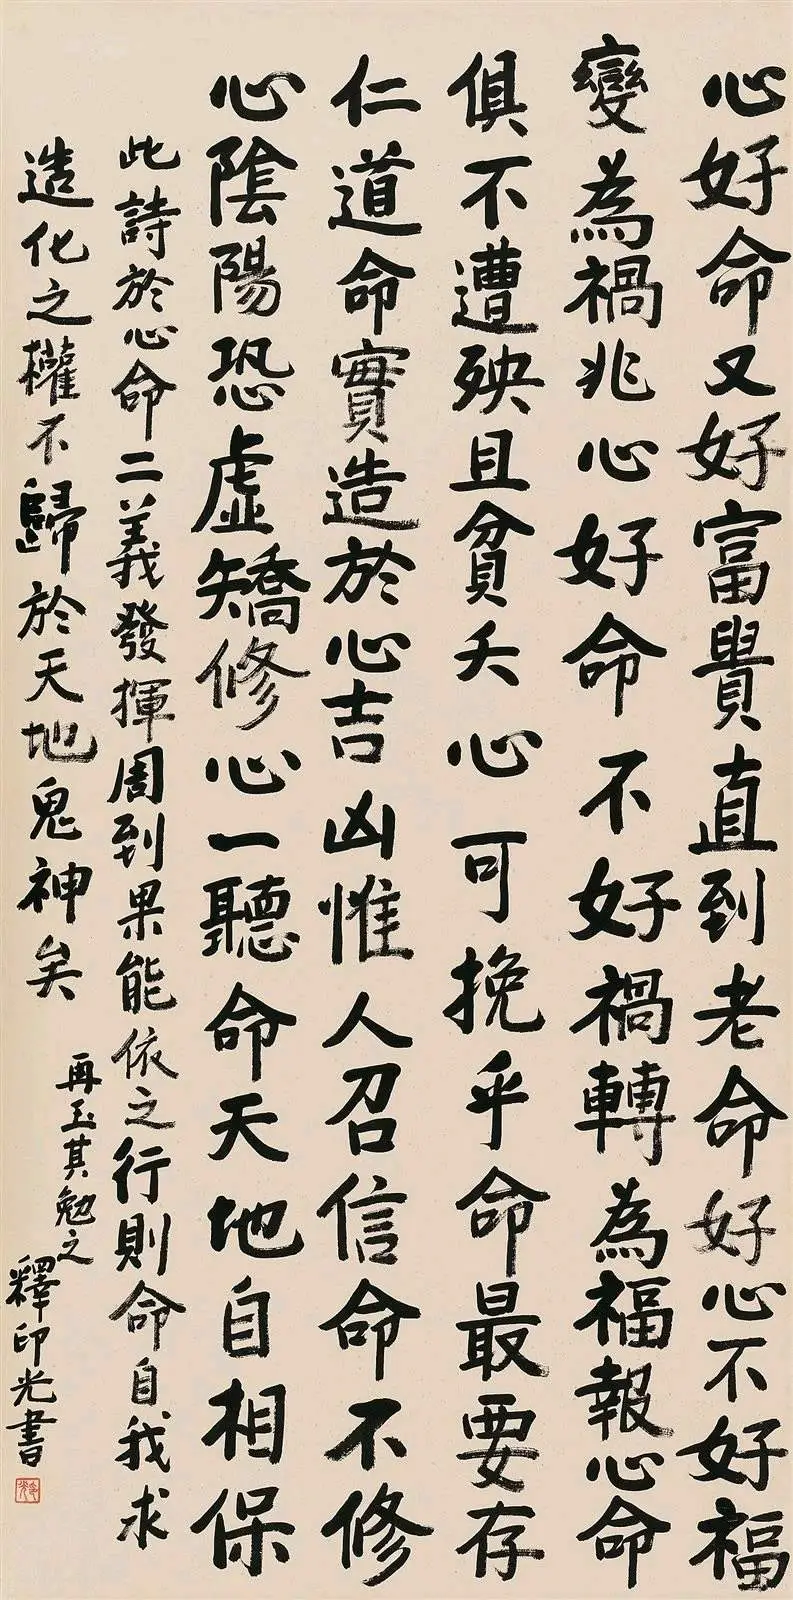 心好命又好富貴直到老命好心不好福
變為禍兆心好命不好禍轉為福報心命
俱不遭殃且貧夭心可挽乎命最要存
仁道命實造於心吉凶惟人召信命不修
心陰陽恐虛矯修心一聽命天地自相保
此詩於心命二義發揮周到果能依之行則命自我求
造化之權不歸於天地鬼神矣
再玉其勉之
釋印光書